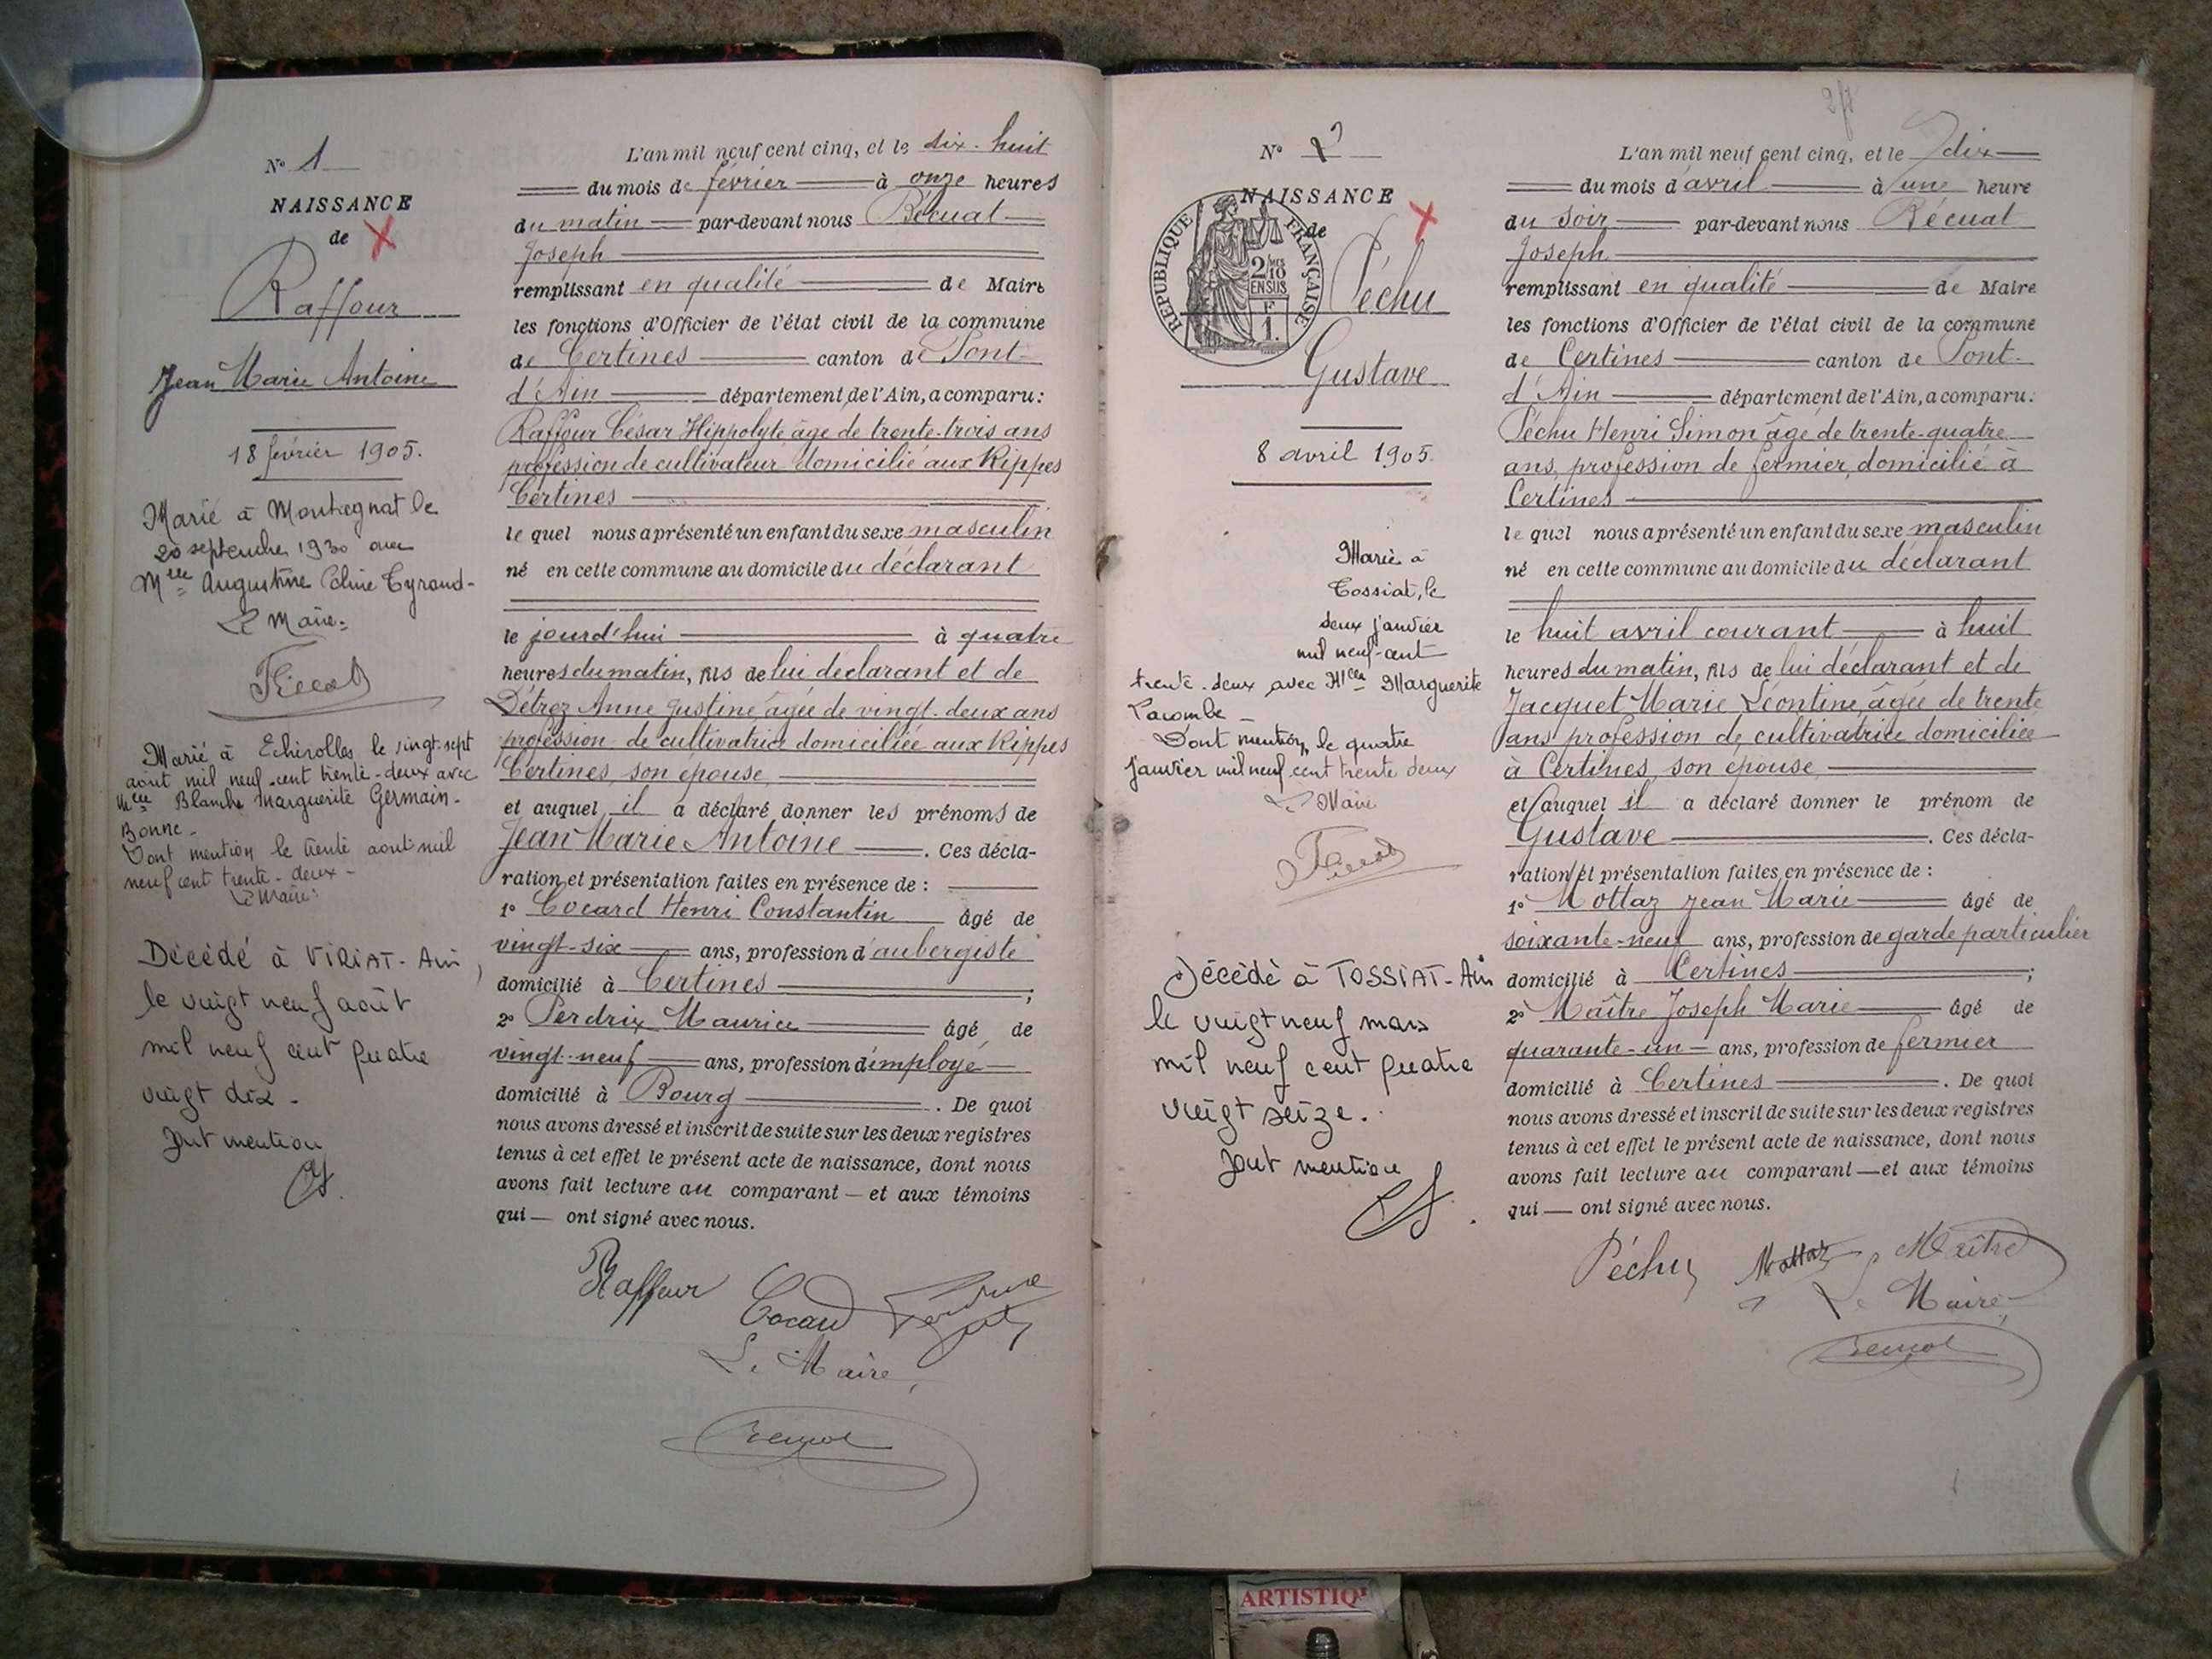 N° 1
NAISSANCE
de
Raffour
Jean Marie Antoine
18 février 1905.
Marié à Montagnat le
20 septembre 1930 avec
Melle Augustine Céline Tyrand-
Le Maire:
Marié à Echirolles le vingt sept
août mil neuf-cent trente-deux avec
Melle Blanche Marguerite Germain-
Bonne-
Dont mention le trente août mil
neuf cent trente-deux-
Le Maire:
Décédé à VIRIAT-Ain,
le vingt neuf août
mil neuf cent quatre
vingt dix -
Dont mention
L'an mil neuf cent cinq, et le dix-huit
du mois de février à onze heures
du matin par-devant nous Bécuat
Joseph
remplissant en qualité de Maire
les fonctions d'Officier de l'état civil de la commune
de Certines canton de Pont-
d'Ain département de l'Ain, a comparu:
Raffour César Hippolyte âgé de trente-trois ans
profession de cultivateur domicilié aux Rippes
Certines
lequel nous a présenté un enfant du sexe masculin
né en cette commune au domicile du déclarant
le jourd'hui à quatre
heures du matin, fils de lui déclarant et de
Détroz Anne Justine âgée de vingt-deux ans
profession de cultivatrice domiciliée aux Rippes
Certines, son épouse
et auquel il a déclaré donner les prénoms de
Jean Marie Antoine . Ces décla-
ration et présentation faites en présence de :
1° Cocard Henri Constantin âgé de
vingt-six ans, profession d'aubergiste
domicilié à Certines ;
2° Perdrix Maurice âgé de
vingt-neuf ans, profession d'employé
domicilié à Bourg . De quoi
nous avons dressé et inscrit de suite sur les deux registres
tenus à cet effet le présent acte de naissance, dont nous
avons fait lecture au comparant — et aux témoins
qui — ont signé avec nous.
Raffour Cocard
Le Maire,
N° 2
NAISSANCE
de
REPUBLIQUE FRANÇAISE
2/10
EN SUS
F
1.
Péchu
Gustave
8 avril 1905.
Marié à
Tossiat, le
deux janvier
mil neuf-cent
trente-deux avec Melle Marguerite
Lacombe -
Dont mention, le quatre
janvier mil neuf cent trente deux
Le Maire
Décédé à TOSSIAT-Ain
le vingt neuf mars
mil neuf cent quatre
vingt seize.
Dont mention
L'an mil neuf cent cinq, et le dix
du mois d'avril à une heure
du soir par-devant nous Bécuat
Joseph
remplissant en qualité de Maire
les fonctions d'Officier de l'état civil de la commune
de Certines canton de Pont-
d'Ain département de l'Ain, a comparu:
Péchu Henri Simon âgé de trente-quatre
ans, profession de fermier, domicilié à
Certines
lequel nous a présenté un enfant du sexe masculin
né en cette commune au domicile du déclarant
le huit avril courant à huit
heures du matin, fils de lui déclarant et de
Jacquet Marie Léontine, âgée de trente
ans profession de cultivatrice domiciliée
à Certines, son épouse
et auquel il a déclaré donner le prénom de
Gustave . Ces décla-
ration et présentation faites en présence de :
1° Mottaz Jean Marie âgé de
soixante-neuf ans, profession de garde particulier
domicilié à Certines ;
2° Maître Joseph Marie âgé de
quarante-un ans, profession de fermier
domicilié à Certines . De quoi
nous avons dressé et inscrit de suite sur les deux registres
tenus à cet effet le présent acte de naissance, dont nous
avons fait lecture au comparant — et aux témoins
qui — ont signé avec nous.
Péchu Mottaz Maître
Le Maire,
ARTISTIQ